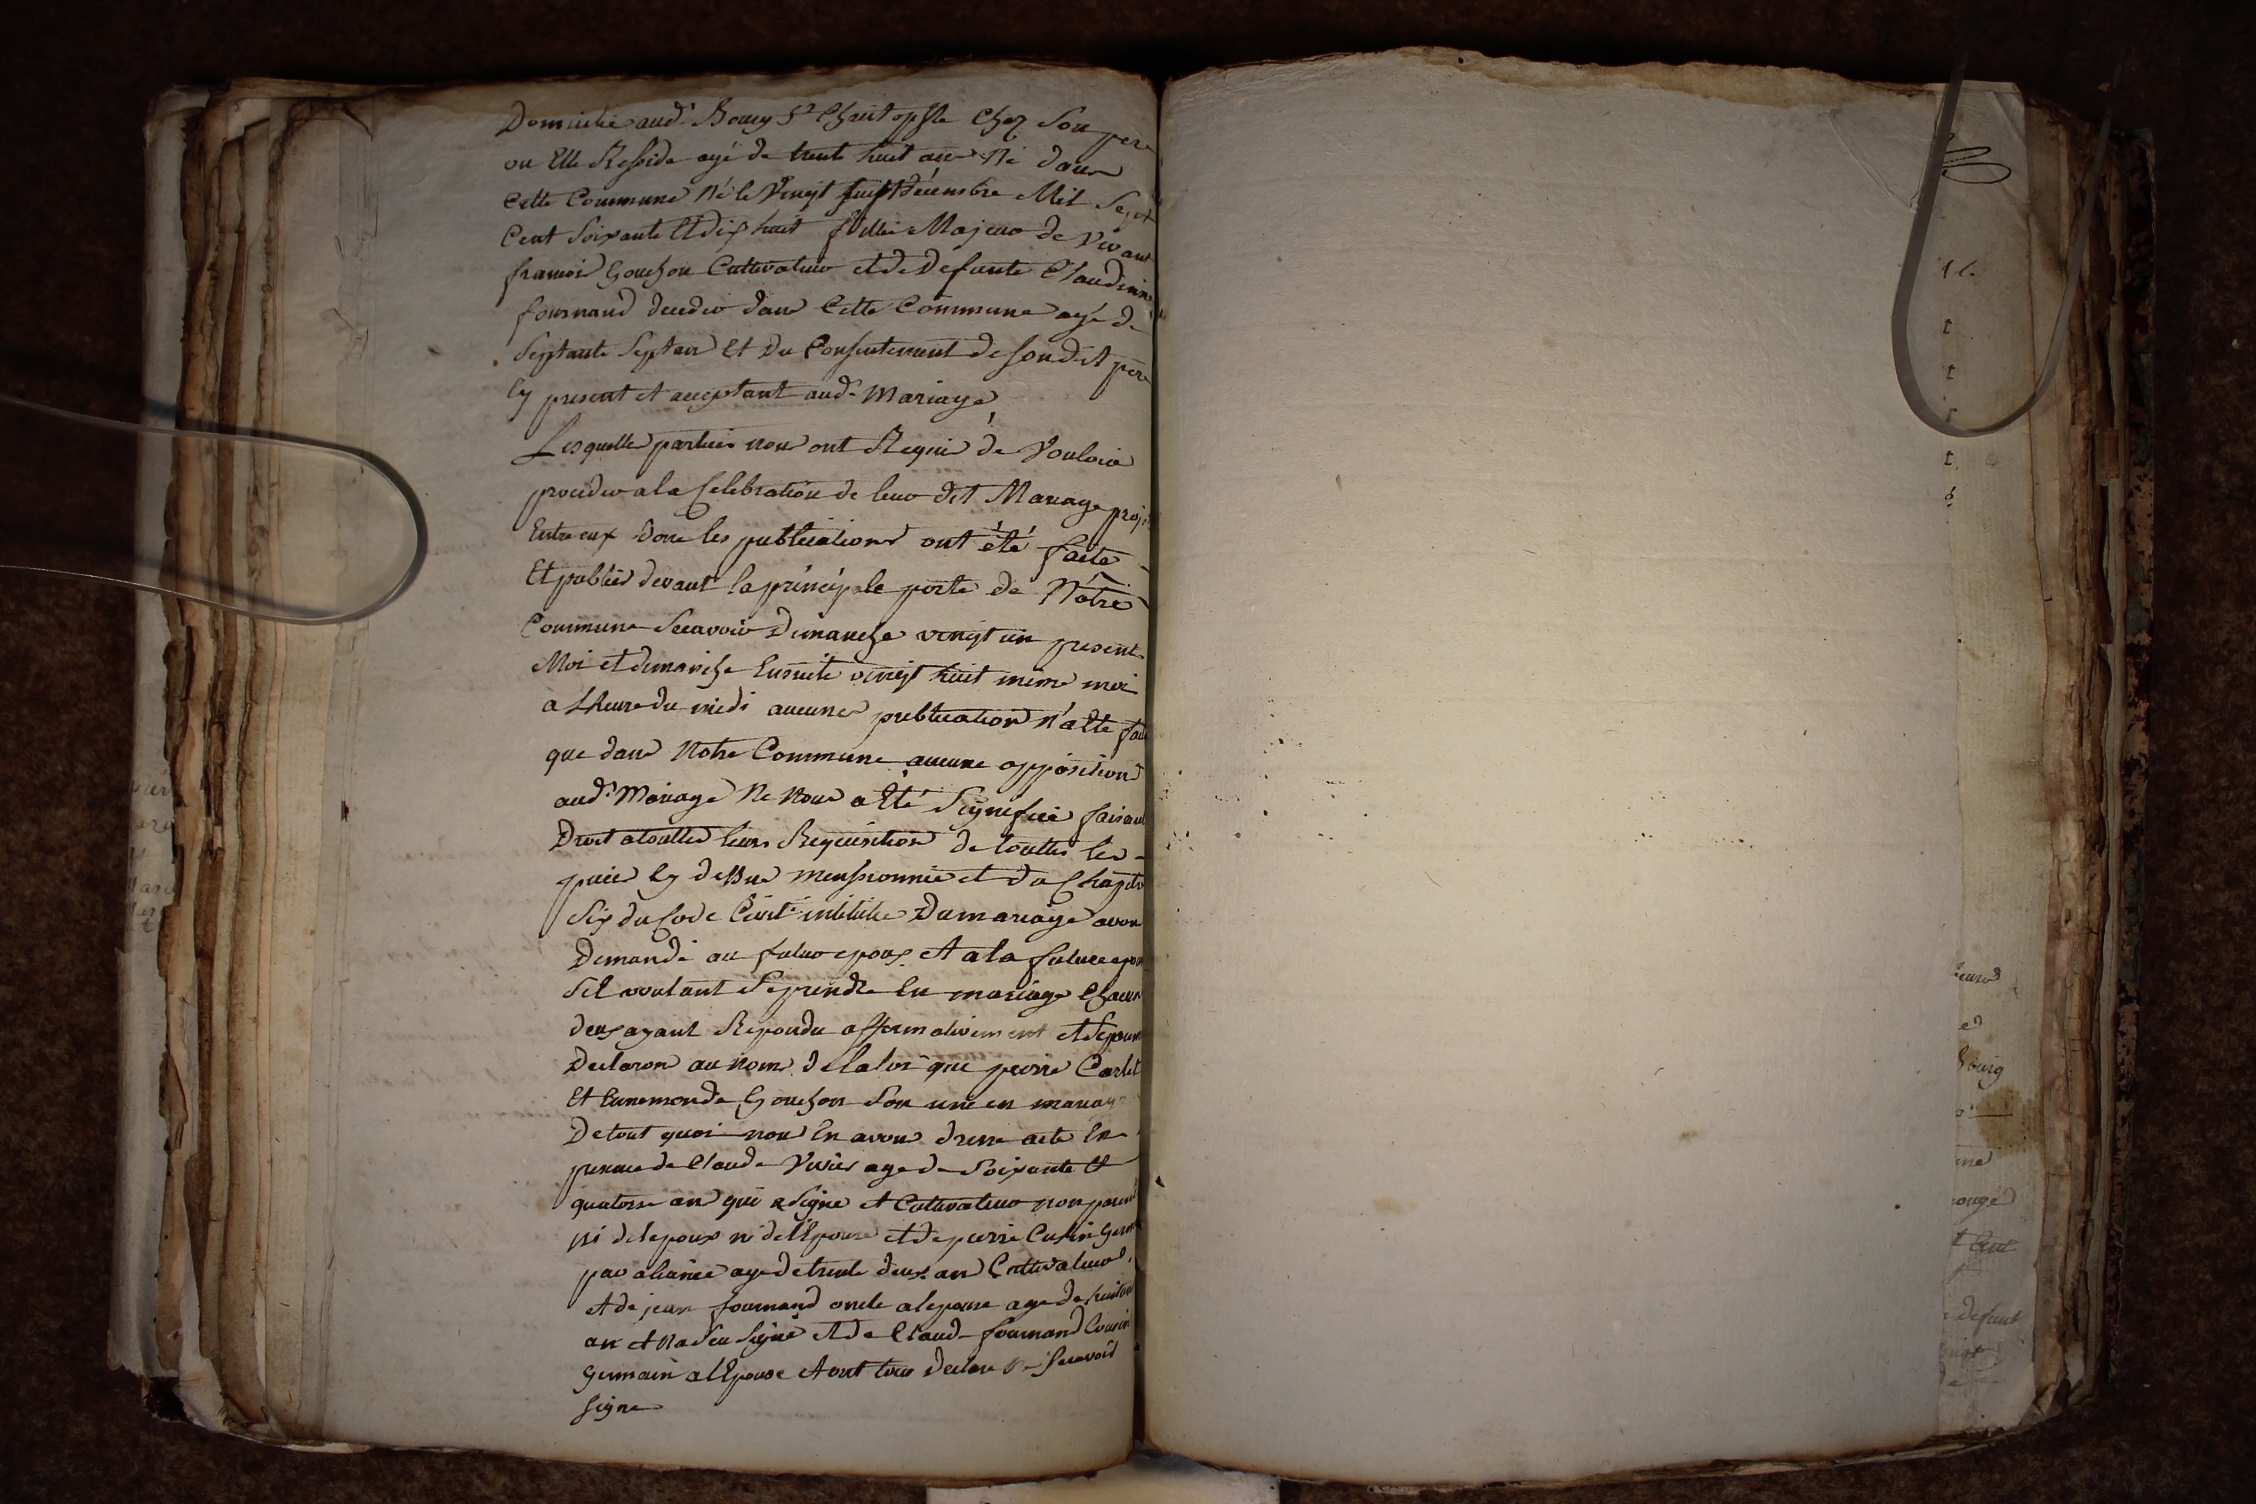 Domicilie aud. Bourg St Christophle chez Son pere
ou Elle Reside agé de trente huit an Né dans
cette Commune Né le Vingt huit décembre Mil Sept
Cent Soixante et dix huit fille Majeur de Vivant
francois Gouchon Cultivateur et de Defunte Claudine
fournand decedeo dans Cette Commune agé de
Septante Sept an Et Du Consentement de son dit pere
Cy present et acceptant aud. Mariage
Lesquelle parties nous ont Requi de Vouloir
proceder a la Celebration de leur dit Mariage proj
Entre eux Donc les publications ont été faite
Et publies devant la principale porte de Nôtre
Commune Scavoir Dimanche vingt un present
Moi et dimanche Ensuite vingt huit meme moi
a Lheure du midi aucunes publication n'a Ete fait
que dans Notre Commune aucune opposition
aud. Mariage Ne Nous a Eté Signifié faisant
Droit a toutte leurs Requisition de touttes les
piece Cy dessus mensionnée et du Chapitr
Six du Code Civil intitule Du mariage avon
Demandé au futur epoux et a la future epou
Sil voulant Se prendre En mariage Chacun
deux ayant Repondu affermativement et Sepour
Declaron au nom de la loi que pierre Carlet
Et Ennemonde Gouchon Son unie en mariage
De tout quoi nou En avou dresse acte En
presence de Claude Vivier age de Soixante et
quatorse an qui a Signe et Cultivateur non parent
ni de lepoux ni de lEpouse et de pierre Cusin Germ
par aliance age de trente deux an Cultivateur
et de jean fournand oncle a lepouse age de
an et Na Seu Signé et de Claude fournand Cousin
Germain a lEpouse et ont tous declare Ne Scavoir
Signe
eurs
es
Bourg
ine
ongé
t
defunt